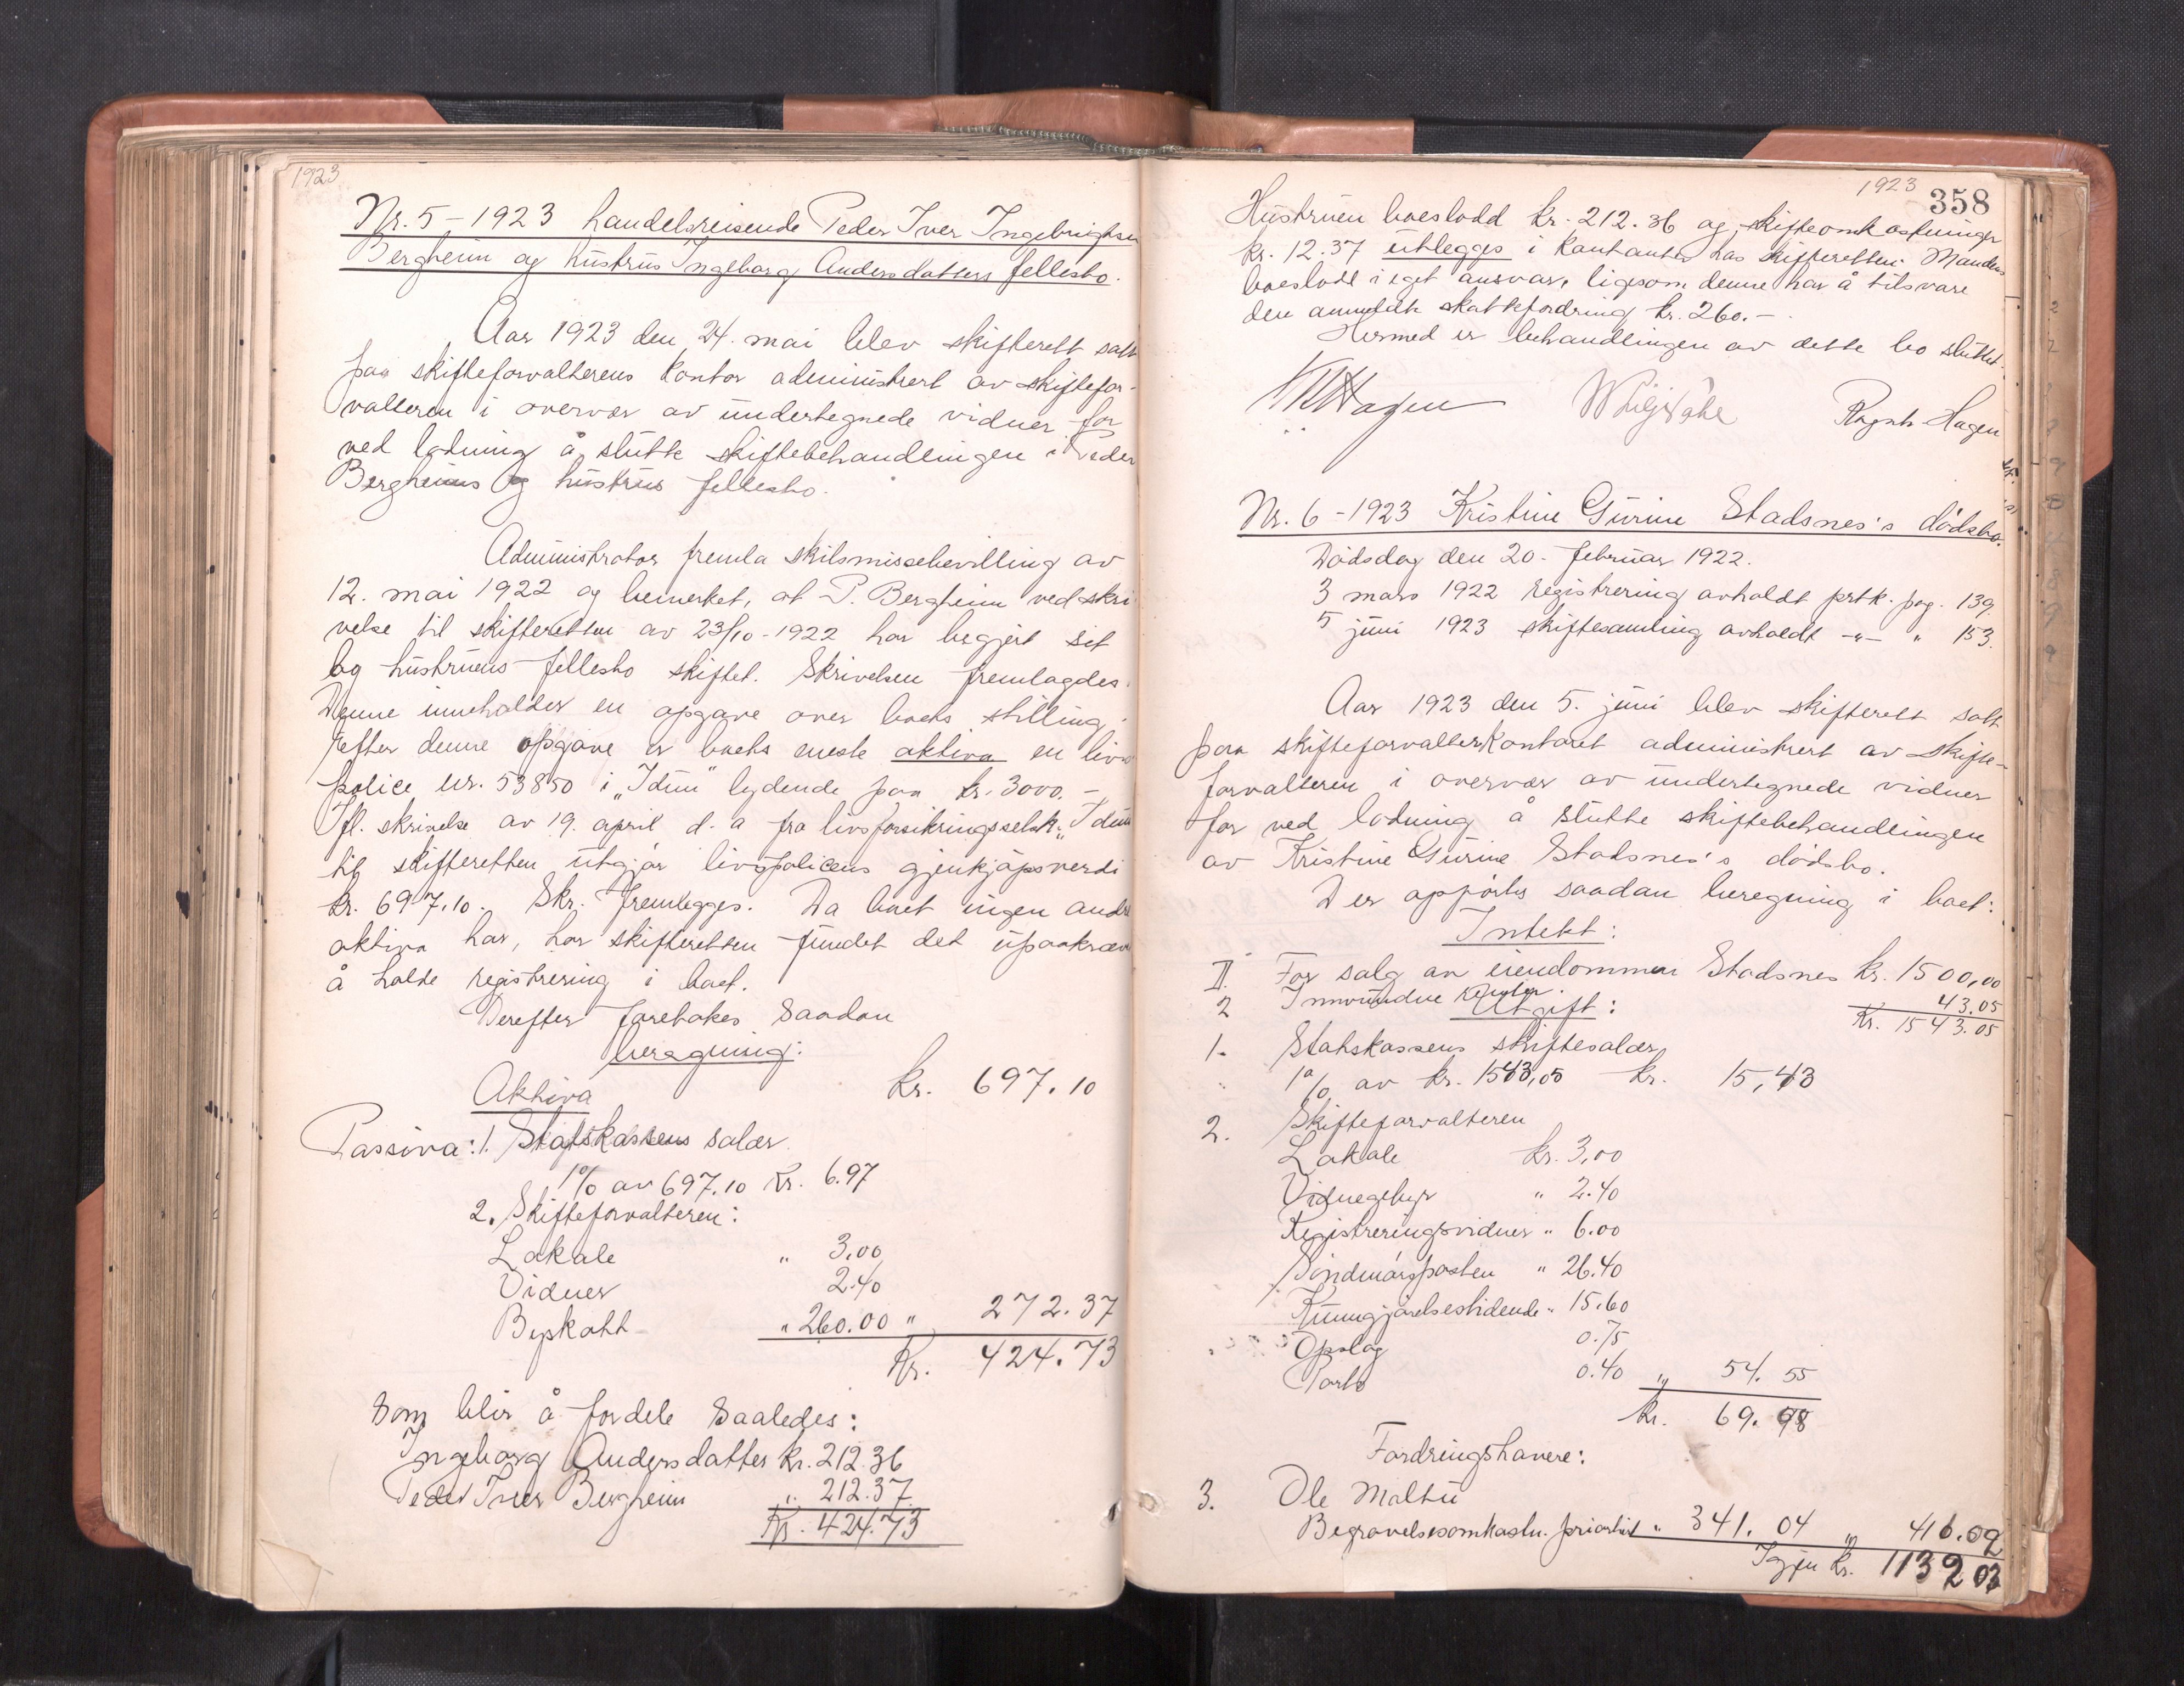 1923
Nr. 5 - 1923 handelsreisende Peder Iver Ingebrigtsen
Bergheim og hustru Ingeborg Andersdatters fellesbo.
Aar 1923 den 24. mai blev skifterett satt
paa skifteforvalterens kontor administrert av skiftefor-
valteren i overvær av undertegnede vidner for
ved lodning å slutte skiftebehandlingen i Peder
Bergheims og hustrus fellesbo.
Administrator fremla skilsmissebevilling av
12. mai 1922 og bemerket, at P. Bergheim ved skri
velse til skifteretten av 23/10-1922 har begjert sit
og hustruens fellesbo skiftet. Skrivelsen fremlagdes.
Denne inneholder en opgave over boets stilling.
Efter denne opgave er boets eneste aktiva en livs
police nr. 53850 i "Idun" lydende paa kr. 3000.-
Ifl. skrivelse av 19. april d. a fra livsforsikringsselsk. "Idun
til skifteretten utgjør livspolicens gjenkjøpsverdi
kr. 697.10. Skr. fremlegges. Da boet ingen andre
aktiva har, har skifteretten fundet det upaakræv
å holde registrering i boet.
Derefter foretokes saadan
beregning:
Aktiva kr. 697.10
Passiva: 1. Statskassens salær
1% av 697.10 Kr. 6.97
2. Skifteforvalteren:
Lokale " 3.00
Vidner 2.40
Byskatt " 260.00 " 272.37
Kr. 424.73
Som blir å fordele saaledes:
Ingeborg Andersdatter kr. 212.36
Peder Iver Bergheim " 212.37
Kr. 424.73
1923 358
Hustruen boeslodd kr. 212.36 og skifteomkostninger
kr. 12.37 utlegges i kontanter hos skifteretten. Mandens
boeslodd i eget ansvar, ligesom denne har å tilsvare
den anmeldte skattefordring kr. 260.-
Hermed er behandlingen av dette bo sluttet.
Hagen Ragnh. Hagen
Nr. 6 - 1923 Kristine Gurine Stadsnes's dødsbo.
Dødsdag den 20. februar 1922.
3 mars 1922 registrering avholdt prtk. pag. 139.
5 juni 1923 skiftesamling avholdt -"- " 153.
Aar 1923 den 5. juni blev skifterett satt
paa skifteforvalterkontoret administrert av skifte-
forvalteren i overvær av undertegnede vidner
for ved lodning å slutte skiftebehandlingen
av Kristine Gurine Stadsnes's dødsbo.
Der opførtes saadan beregning i boet:
Intekt:
1. For salg av eiendommen Stadsnes kr. 1500,00
2 Innvundne renter 43.05
Utgift: Kr. 1543.05
1. Statskassens skiftesalær
1% av kr. 1543,05 kr. 15,43
2. Skifteforvalteren
Lokale kr. 3,00
Vidnegebyr " 2.40
Registreringsvidner " 6.00
Søndmørsposten " 26.40
Kunngjørelsestidende " 15.60
Opslag 0.75
Porto 0.40 " 54.55
kr. 69.98
Fordringshavere:
3. Ole Maltu
Begravelsesomkostn. prioritet " 341.04 " 416.02
Igjen kr. 1132 03